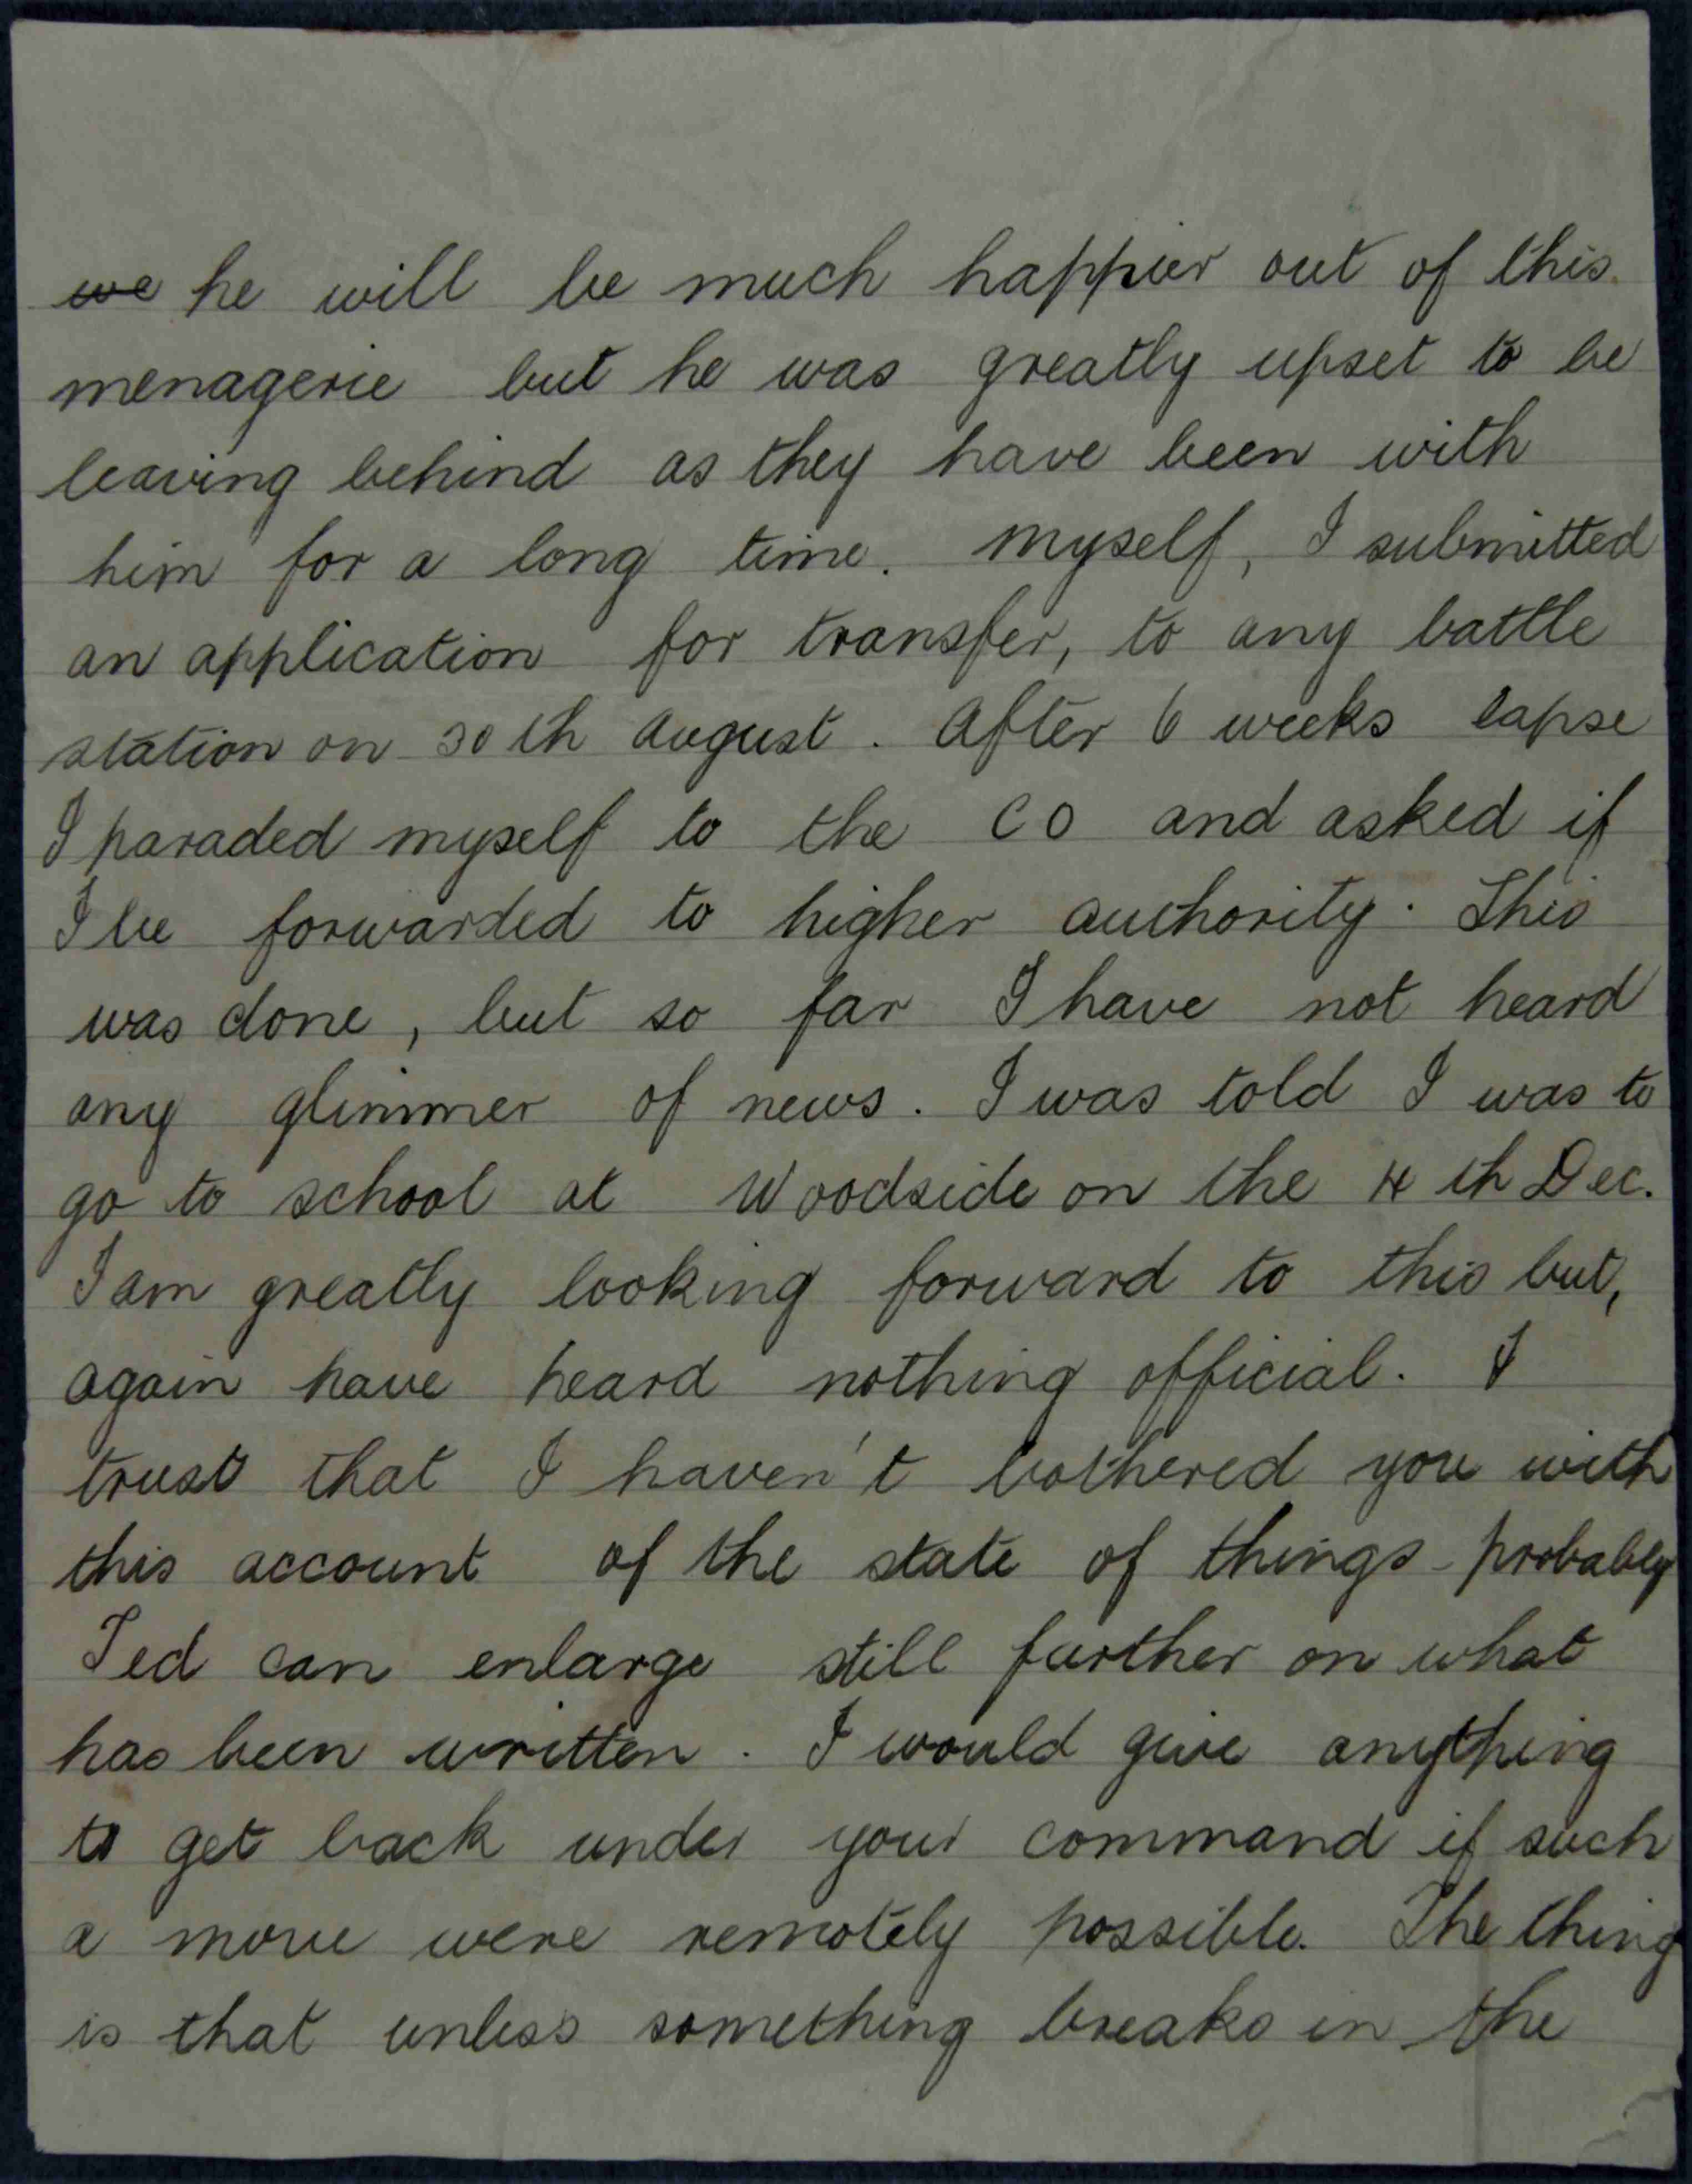 we he will be much happier out of this
menagerie but he was greatly upset to be
leaving behind as they have been with
him for a long time. Myself, I submitted
an application for transfer, to any battle
station on 30th August. After 6 weeks lapse
I paraded myself to the CO and asked if
I be forwarded to higher authority. This
was done, but so far I have not heard
any glimmer of news. I was told I was to
go to school at Woodside on the 4th Dec.
I am greatly looking forward to this but,
again have heard nothing official. I
trust that I haven't bothered you with
this account of the state of things - probably
Ted can enlarge still further on what
has been written. I would give anything
to get back under your command if such
a move were remotely possible. The thing
is that unless something breaks in the